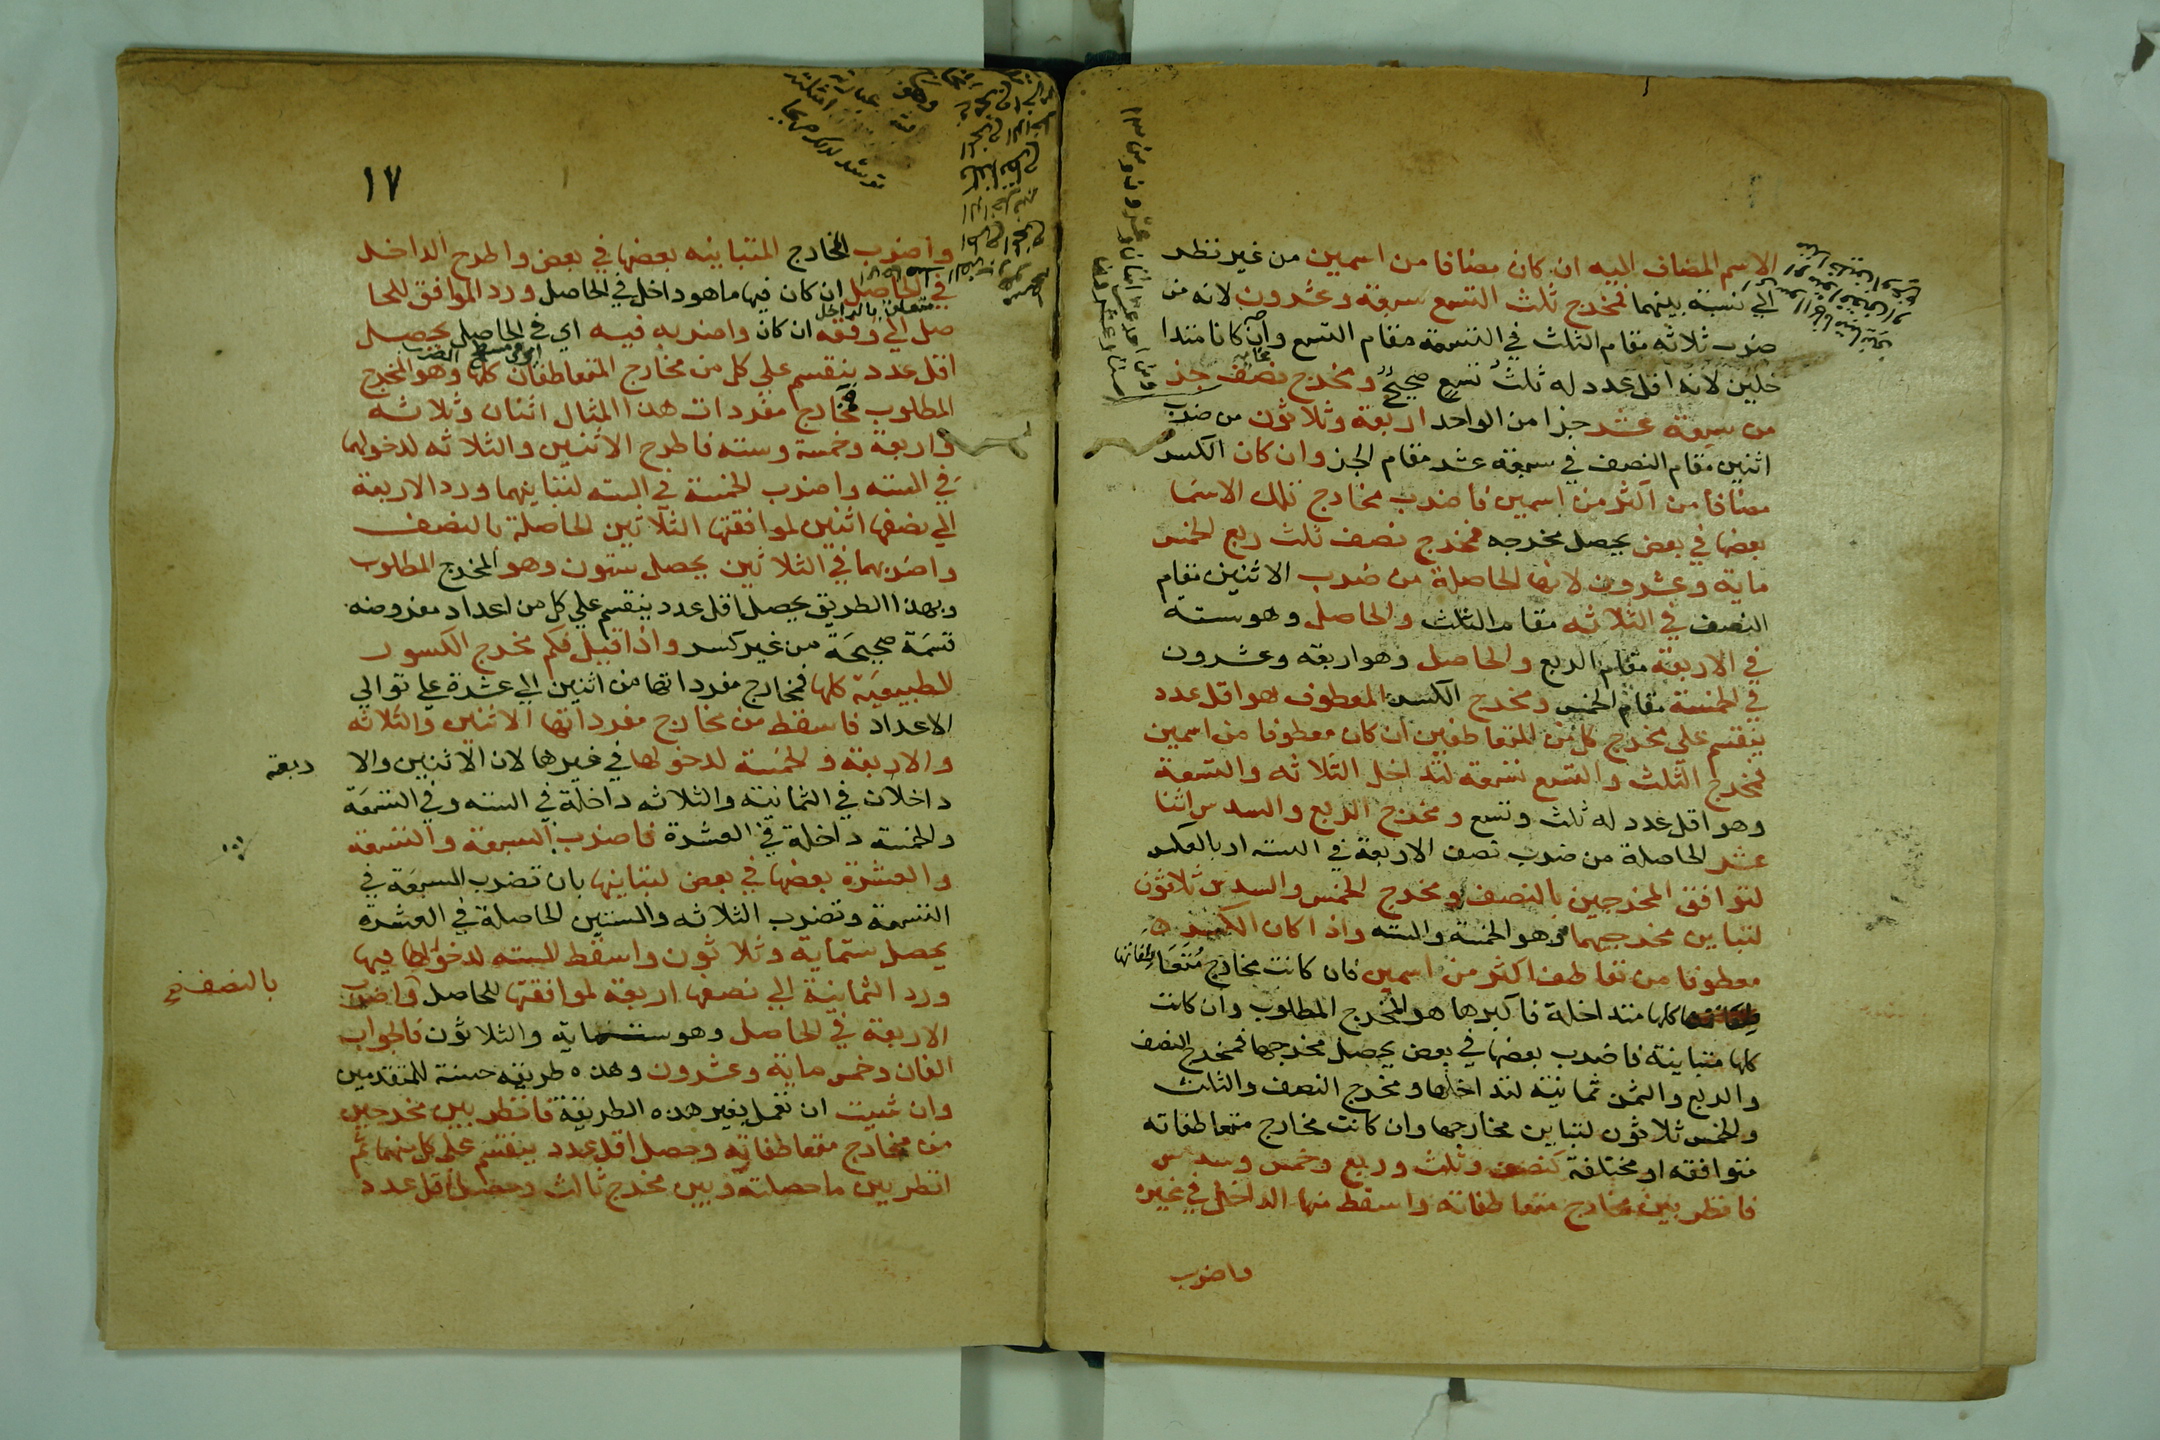 الاسم المضاف اليه ان كان مضافا من اسمين من غير نظر
الي نسبة بينهما فمخرج ثلث التسع سبعة وعشرون لانه من
ضرب ثلاثه مقام الثلث في التسعة مقام التسع وان كانا متدا
خلين لانه اقل عدد له ثلث تسع صحيح ومخرج نصف جز
من سبعة عشر جزا من الواحد اربعة وثلاثون من ضرب
اثنين مقام النصف في سبعة عشر مقام الجز وان كان الكسر
مضافا من اكثر من اسمين فاضرب مخارج تلك الاسما
بعضها في بعض يحصل مخرجه فمخرج نصف ثلث ربع الخمس
ماية وعشرون لانها الحاصلة من ضرب الاثنين مقام
النصف في الثلاثه مقام الثلث والحاصل وهو سته
في الاربعة مقام الربع والحاصل وهو اربعه وعشرون
في الخمسة مقام الخمس ومخرج الكسر المعطوف هو اقل عدد
ينقسم علي مخرج كل من المتعاطفين ان كان معطوفا من اسمين
فمخرج الثلث والتسع تسعه لتداخل الثلاثه والتسعة
وهو اقل عدد له ثلث وتسع ومخرج الربع والسدس اثنا
عشر الحاصلة من ضرب نصف الاربعة في الستة او بالعكس
لتوافق المخرجين بالنصف ومخرج الخمس والسدس ثلاثون
لتباين مخرجيهما وهو الخمسة والسته واذا كان الكسر
معطوفا من تعاطف اكثر من اسمين فان كانت مخارج متعاطفاتها
كلها متداخلة فاكبرها هو المخرج المطلوب وان كانت
كلها متباينة فاضرب بعضها في بعض يحصل مخرجها فمخرج النصف
والربع والثمن ثمانية لتداخلها ومخرج النصف والثلث
والخمس ثلاثون لتباين مخارجها وان كانت مخارج متعاطفاته
متوافقه او مختلفة كنصف وثلث وربع وخمس وسدس
فانظر بين مخارج متعاطفاته واسقط منها الداخل في غيره
واضرب
١٧
واضرب المخارج المتباينه بعضها في بعض واطرح الداخل
في الحاصل ان كان فيها ما هو داخل في الحاصل ورد الموافق للحا
متعلق بالداخل
صل الي وفقه ان كان واضربه فيه اي في الحاصل يحصل
اقل عدد ينقسم علي كل من مخارج المتعاطفات كلها وهو المخرج
المطلوب فمخارج مفردات هذا المثال اثنان وثلاثه
واربعة وخمسة وسته فاطرح الاثنين والثلاثه لدخولهما
في السته واضرب الخمسة في السته لتباينهما ورد الاربعة
الي نصفها اثنين لموافقتها الثلاثين الحاصلة بالنصف
واضربهما في الثلاثين يحصل ستون وهو المخرج المطلوب
وبهذا الطريق يحصل اقل عدد ينقسم علي كل من اعداد مفروضه
قسمة صحيحة من غير كسر واذا قيل فكم مخرج الكسور
الطبيعية كلها فمخارج مفرداتها من اثنين الي عشرة علي توالي
الاعداد فاسقط من مخارج مفرداتها الاثنين والثلاثه
والاربعة والخمسة لدخولها في غيرها لان الاثنين والا
ربعه
داخلان في الثمانية والثلاثه داخلة في السته وفي التسعة
والخمسه داخلة في العشرة فاضرب السبعة والتسعة
والعشرة بعضها في بعض لتباينها بان تضرب السبعة في
التسعة وتضرب الثلاثه والستين الحاصلة في العشره
يحصل ستماية وثلاثون واسقط السته لدخولها فيها
ورد الثمانية الي نصفها اربعة لموافقتها للحاصل واضرب
بالنصف
الاربعة في الحاصل وهو ستماية والثلاثون فالجواب
الفان وخمس ماية وعشرون وهذه طريقه حسنة للمتقدمين
وان شيت ان تعمل بغير هذه الطريقة فانظر بين مخرجين
من مخارج متعاطفاته وحصل اقل عدد ينقسم علي كل منهما ثم
انظر بين ما حصلته وبين مخرج ثالث وحصل اقل عدد